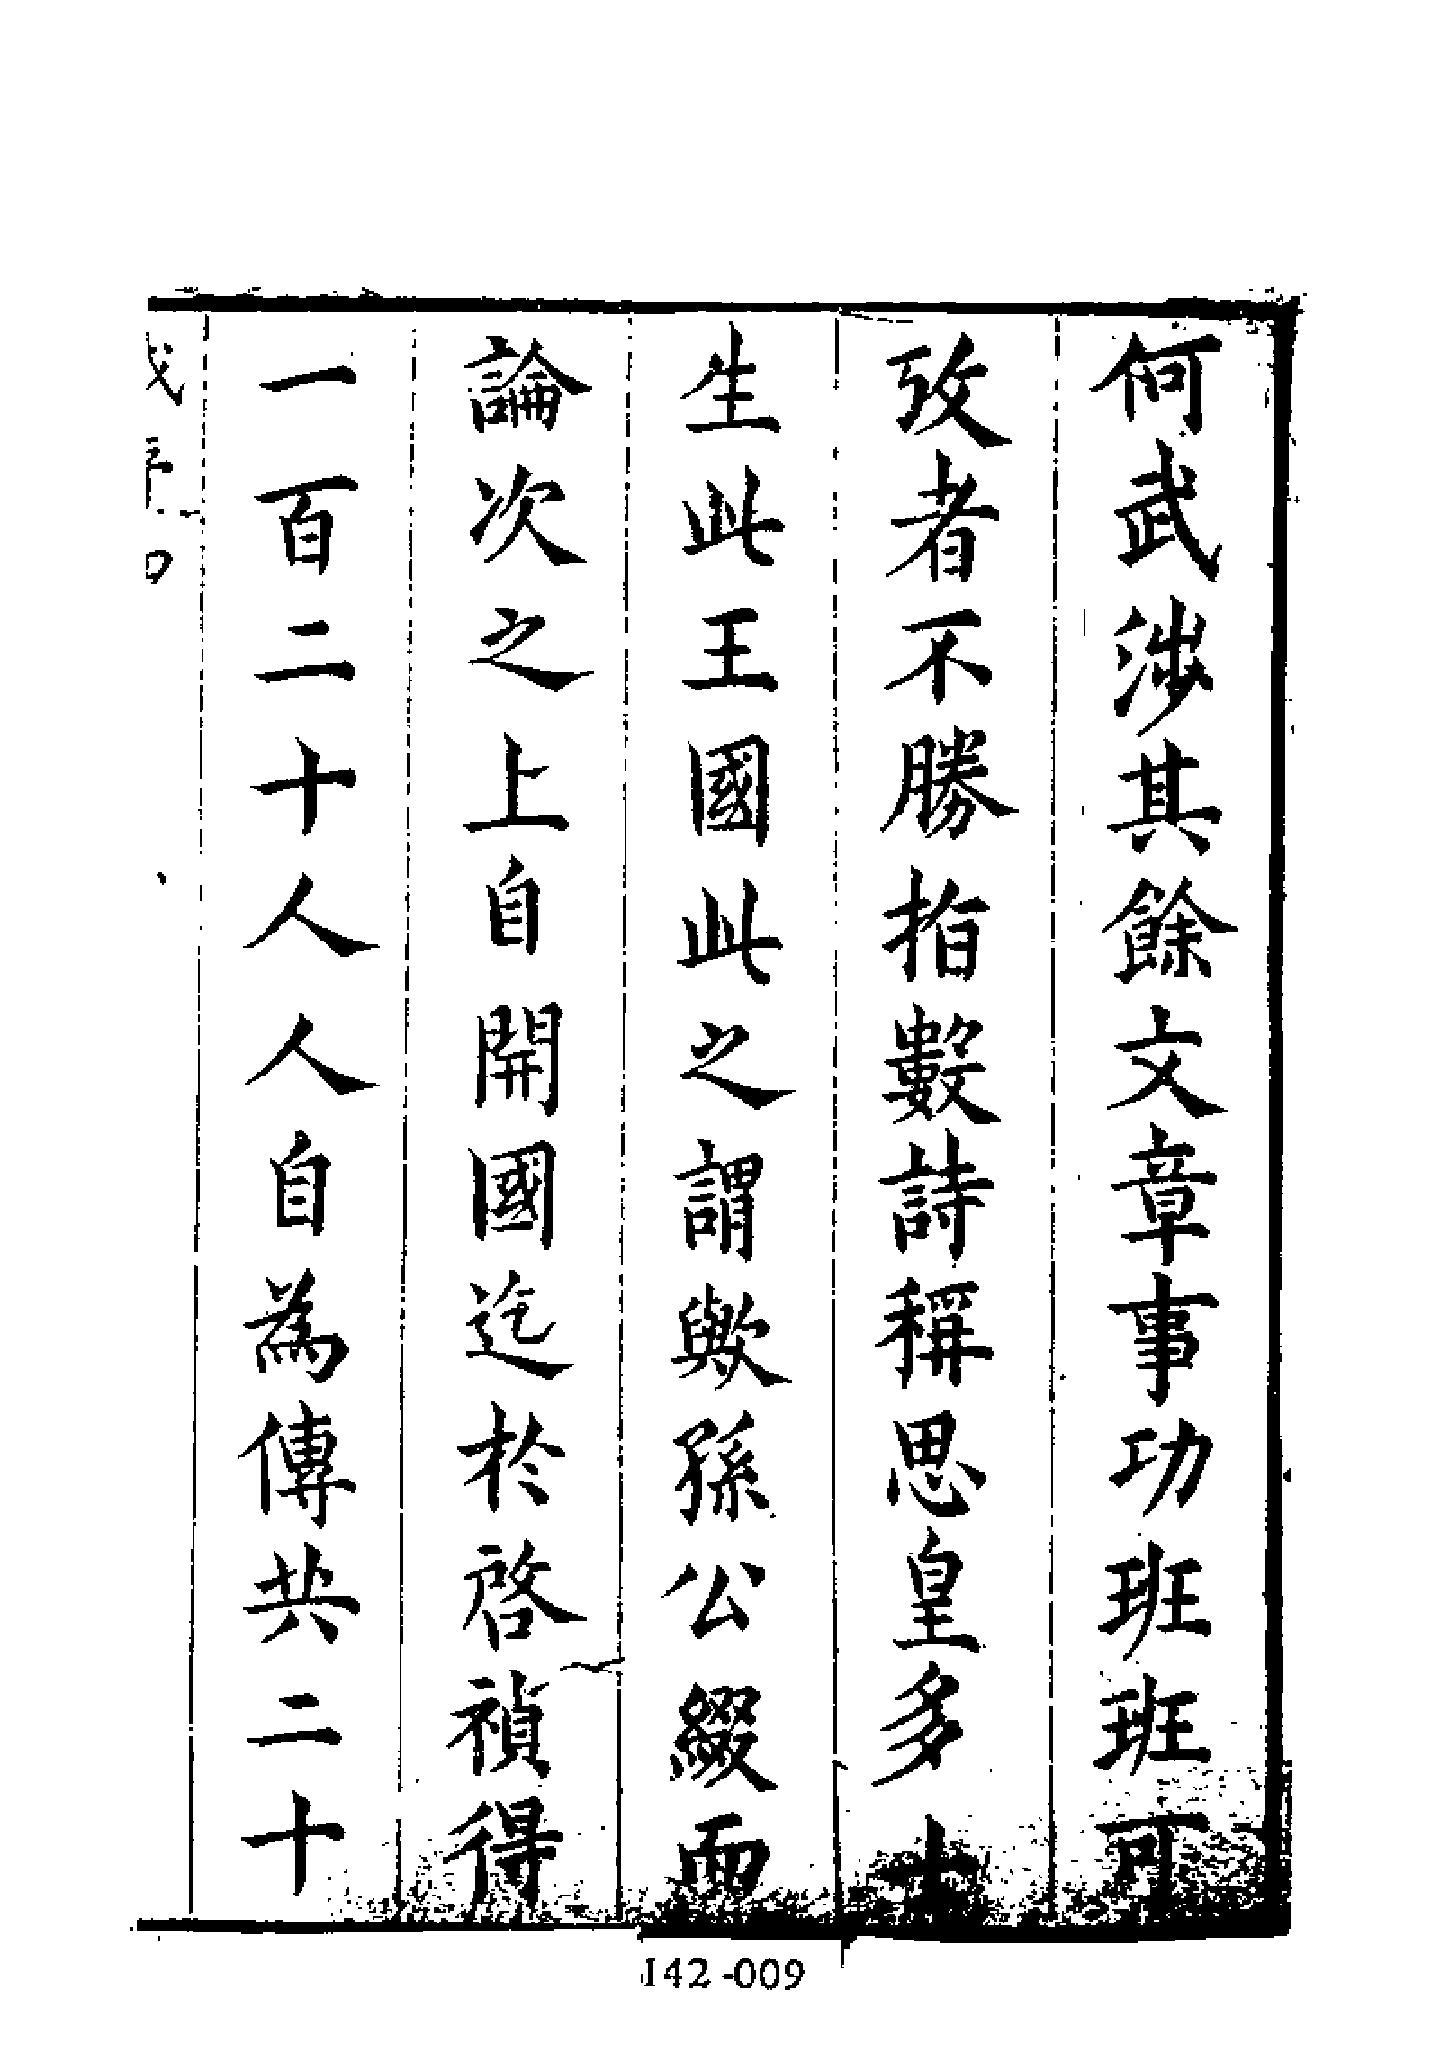 何武涉其餘文章事功班班可
攷者不勝指數詩稱思皇多士
生此王國此之謂歟孫公綴而
論次之上自開國迄於啓禎得
一百二十人人自為傳共二十
142-009